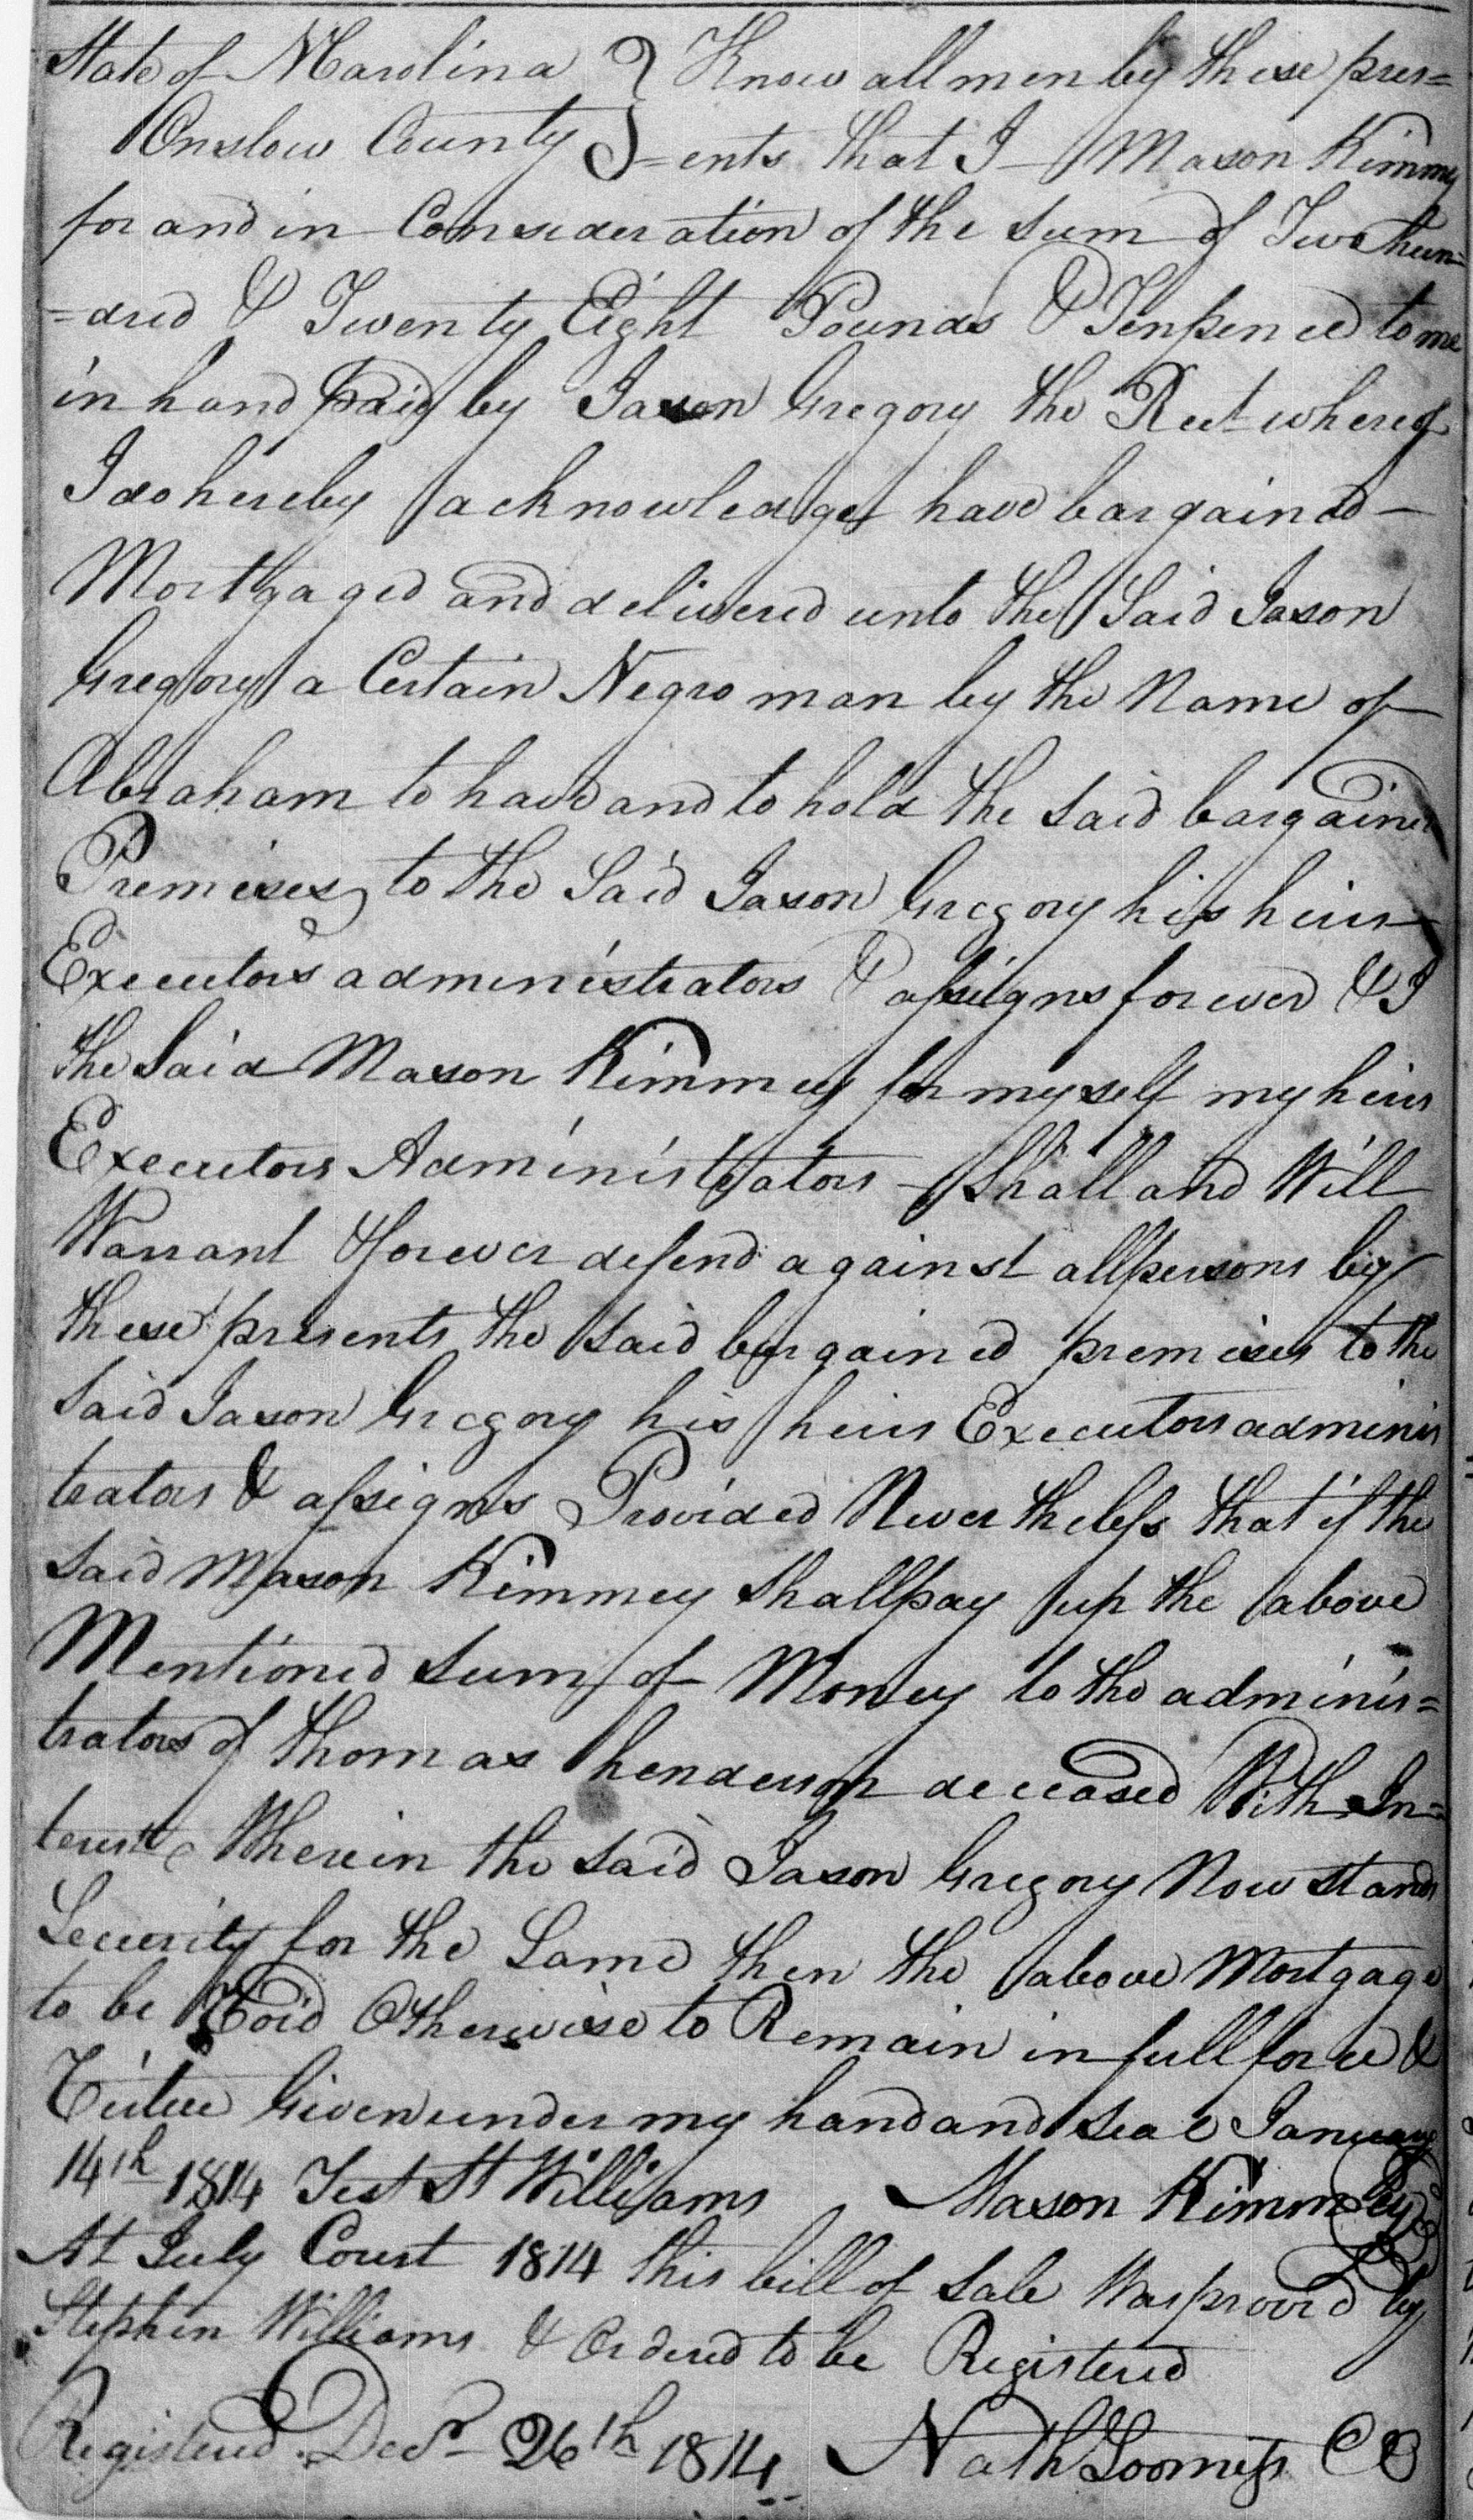 State of N Carolina } Know all men by these pres=
Onslow County } =ents that I Mason Kimmey
for and in Consideration of the sum of Two hun=
=dred & Twenty Eight Pounds & Tenpence to me
in hand paid by Jason Gregory the Rect whereof
I do hereby acknowledge have bargained
Mortgaged and delivered unto the Said Jason
Gregory a Certain Negro man by the Name of
Abraham to have and to hold the said bargained
Premises to the Said Jason Gregory his heirs
Executors administrators & assigns forever & I
the Said Mason Kimmey for myself my heirs
Executors Administrators Shall and Will
Warrant & forever defend against all persons by
these presents the said bargained premises to the
Said Jason Gregory his heirs Executors adminis
trators & assigns Provided Nevertheless that if the
Said Mason Kimmey shall pay up the above
Mentioned sum of Money to the adminis=
trators of Thomas henderson deceased With In=
terest Wherein the said Jason Gregory Now stands
Security for the Same then the above Mortgage
to be Void Otherwise to Remain in full force &
Virtue Given under my hand and Seal January
14th 1814 Test St Williams Mason Kimmey
At July Court 1814 this bill of Sale Was proovd by
Stephen Williams & Ordered to be Registered
Registered Decr 26th 1814 Nath Loomiss CC